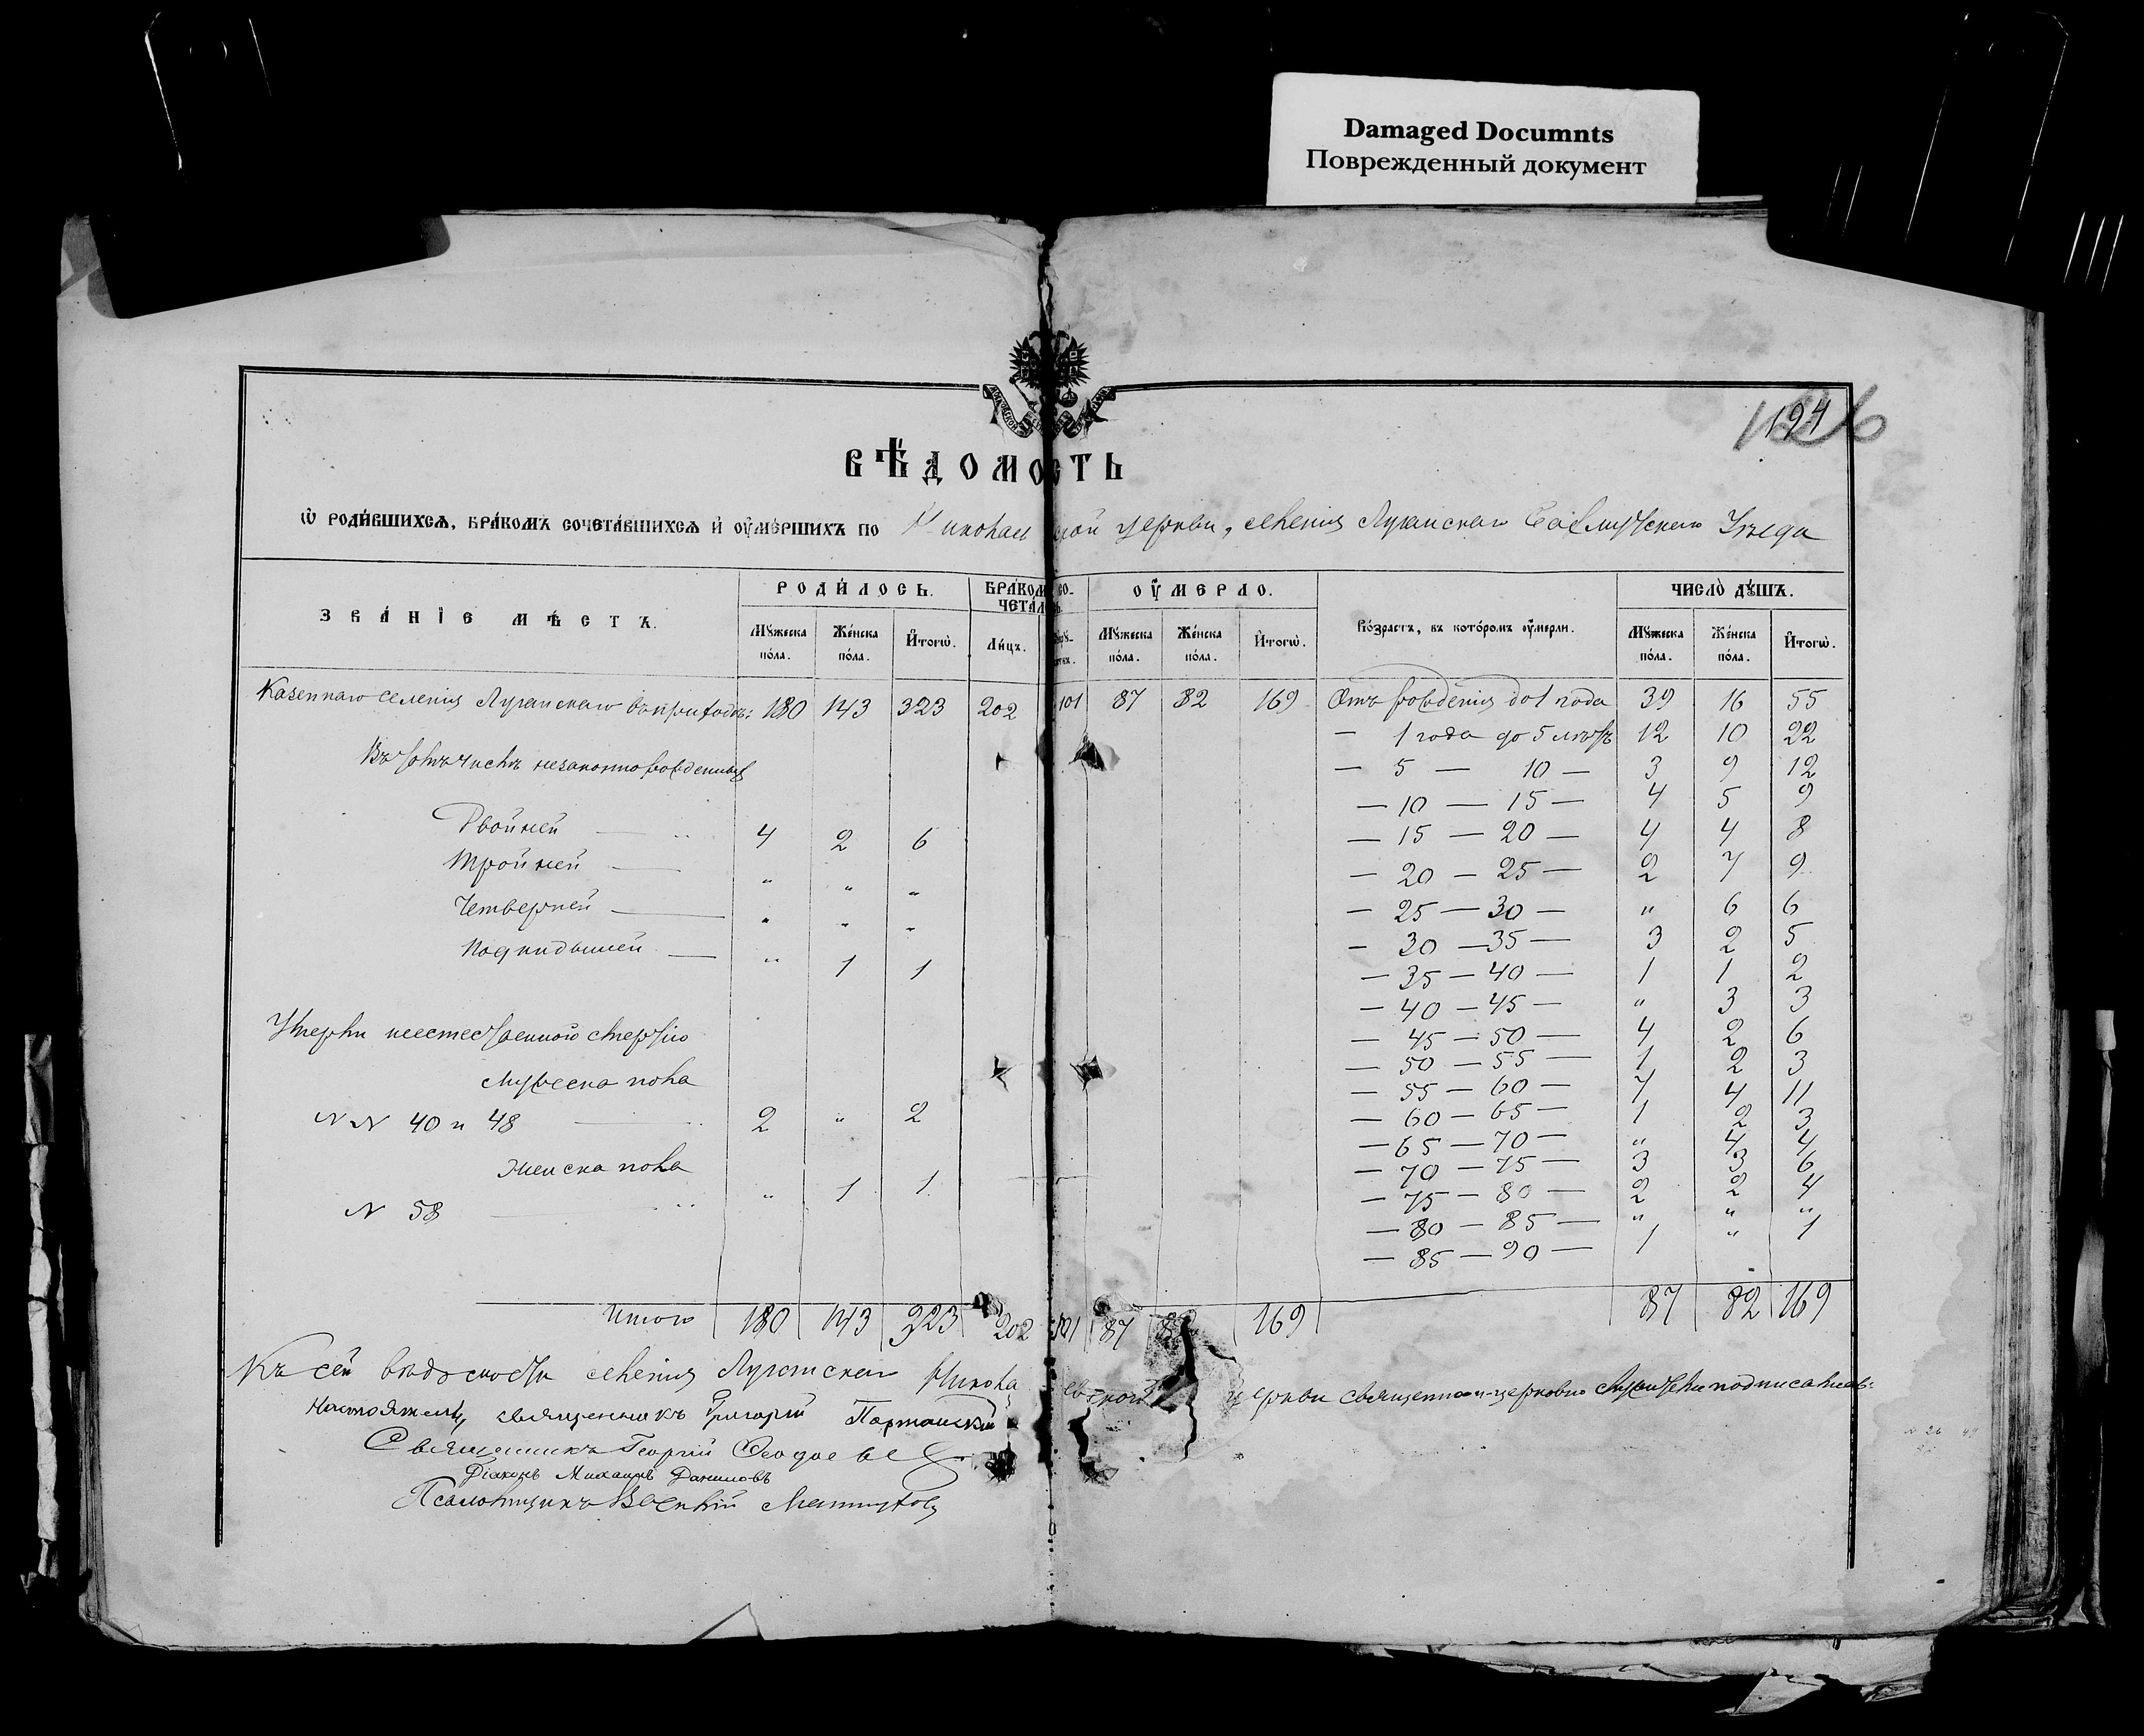 Damaged Documnts
Поврежденный документ
194
ВѢДОМОСТЬ
Ѡ РОДИ́ВШИХСѦ, БРА́КОМЪ СОЧЕТА́ВШИХСѦ И҆ ОУ҆МЕ́РШИХЪ ПО Николаевской церкви, селенія Луганскаго Бахмутскаго Уѣзда
ЗВА́НІЕ МѢСТЪ.
РОДИ́ЛОСЬ.
БРА́КОМЪ СО-
ЧЕТА́ЛОСЬ
ОУ҆МЕРЛО.
Во́зрастъ, въ кото́ромъ оу҆мерли.
ЧИСЛО̀ ДꙊШЪ.
Мꙋжеска по́ла. Же́нска по́ла. И҆тогѡ̀. Ли́цъ. Мꙋжеска по́ла. Же́нска по́ла. И҆тогѡ̀. Мꙋжеска по́ла. Же́нска по́ла. И҆тогѡ̀.
Казеннаго селенія Луганскаго въ приходѣ: 180 143 323 202 101 87 82 169 Отъ рожденія до 1 года 39 16 55
— 1 года до 5 лѣтъ 12 10 22
Въ томъ числѣ незаконнорожденныхъ
— 5 — 10 — 3 9 12
— 10 — 15 — 4 5 9
Двойней — „ 4 2 6
— 15 — 20 — 4 4 8
Тройней — „ „ „
— 20 — 25 — 2 7 9
Четверней — „ „ „
— 25 — 30 — „ 6 6
— 30 — 35 — 3 2 5
Подкидышей — „ 1 1
— 35 — 40 — 1 1 2
— 40 — 45 — „ 3 3
Умерли неестественною смертію
— 45 — 50 — 4 2 6
— 50 — 55 — 1 2 3
Мужеска пола
— 55 — 60 — 7 4 11
№№ 40 и 48 — 2 „ 2
— 60 — 65 — 1 2 3
— 65 — 70 — „ 4 4
Женска пола
— 70 — 75 — 3 3 6
№ 58 — „ 1 1
— 75 — 80 — 2 2 4
— 80 — 85 — „ „ „
— 85 — 90 — 1 „ 1
Итого 180 143 323 202 101 87 82 169 87 82 169
Къ сей вѣдомости селенія Луганскаго Николаевской церкви священно-и-церковно служители подписались:
Настоятель, священникъ Григорій
Священникъ Георгій
Діаконъ Михаилъ Даниловъ
Псаломщикъ Василій